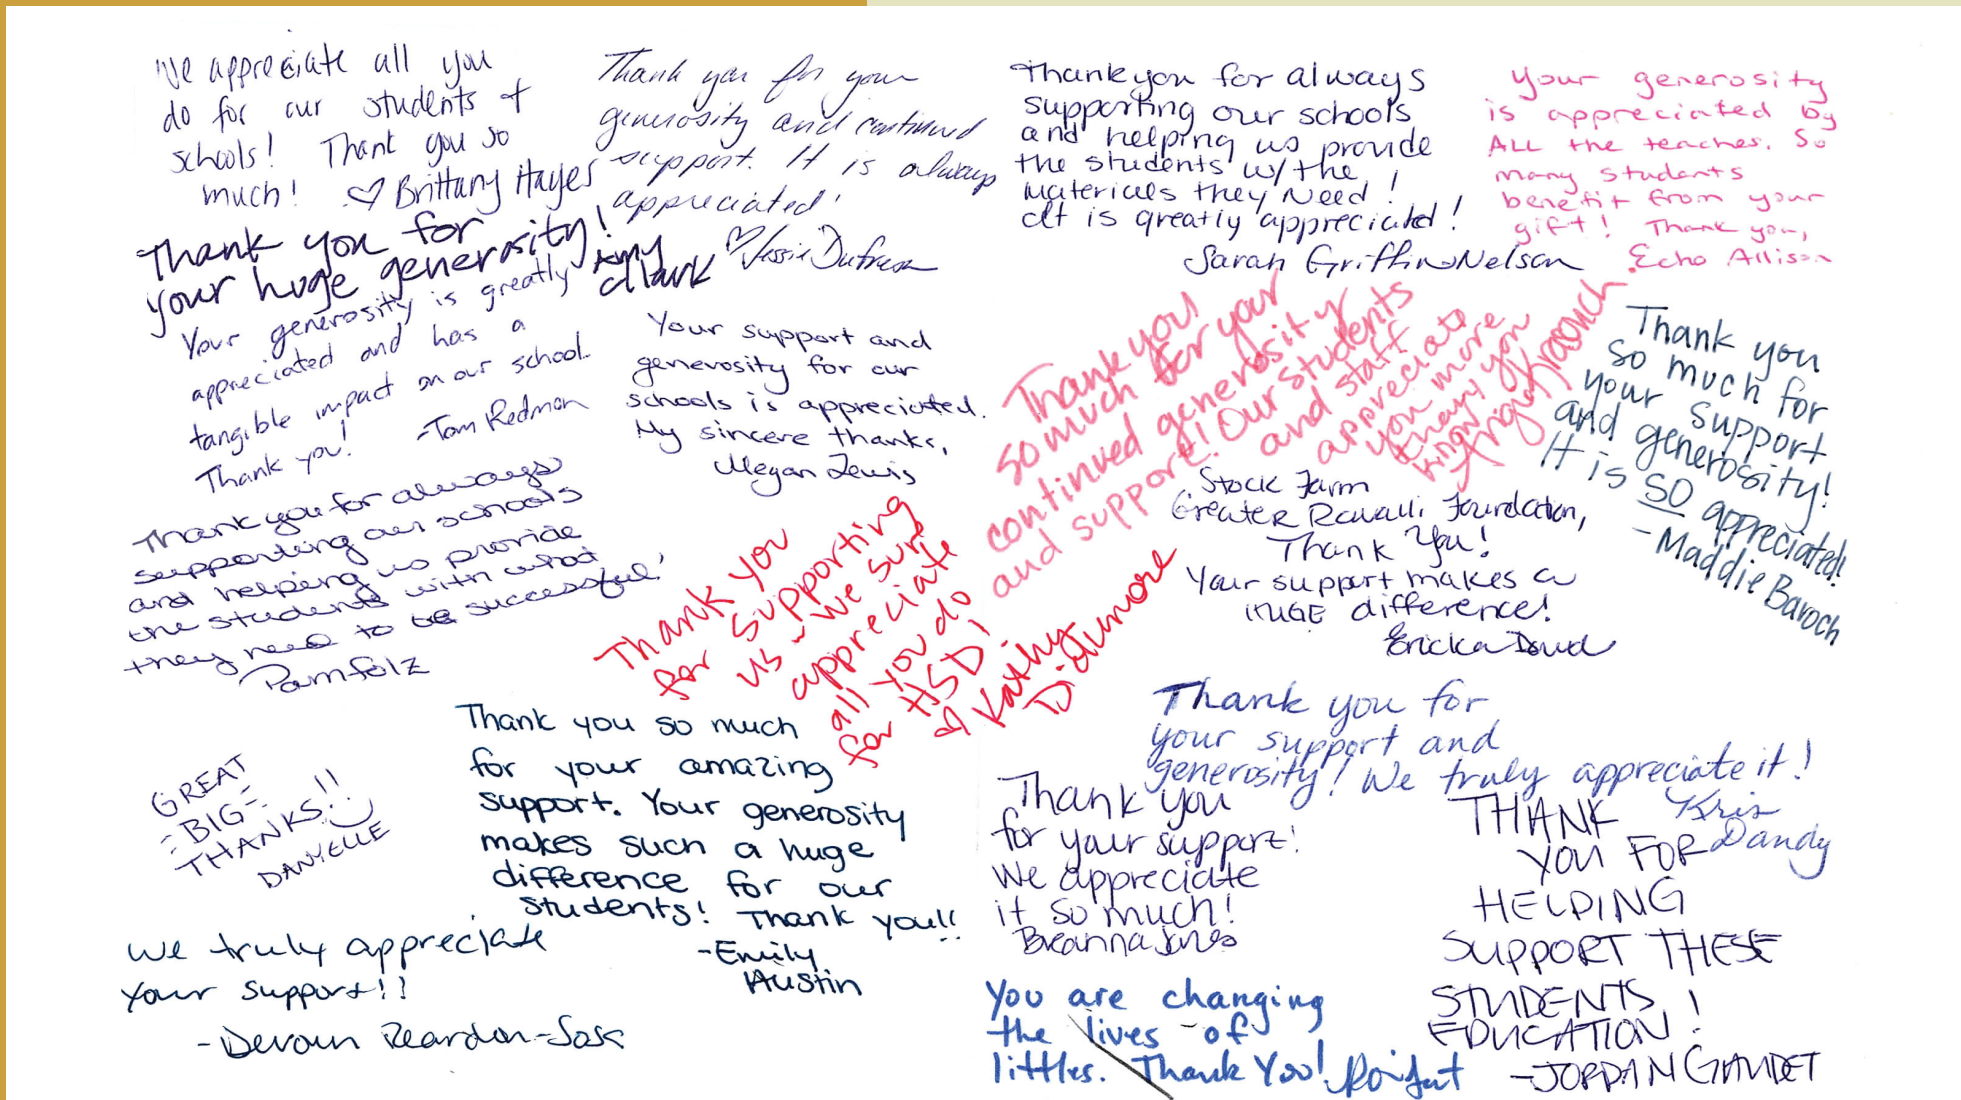 We appreciate all you
do for our students +
schools! Thank you so
much! ♡ Brittany Hayes
Thank you for your
generosity and continued
support. It is always
appreciated!
♡ Jessie Dufresne
Thank you for always
supporting our schools
and helping us provide
the students w/ the
materials they need!
It is greatly appreciated!
Sarah Griffin Nelson
Your generosity
is appreciated by
ALL the teaches. So
many students
benefit from your
gift! Thank you,
Echo Allison
Thank you for
your huge generosity!
Amy
Clark
Your generosity is greatly
appreciated and has a
tangible impact on our school.
Thank you!
-Tom Redmon
Your support and
generosity for our
schools is appreciated.
My sincere thanks,
Megan Lewis
Thank you!
so much for your
continued generosity
and support! Our students
and staff
appreciate
you more
than you
know!
Thank you
so much for
your support
and generosity!
It is SO appreciated!
- Maddie Baroch
Stock Farm
Greater Ravalli Foundation,
Thank You!
Your support makes a
HUGE difference!
Ericka Doud
Thank you for always
supporting our schools
and helping us provide
the students with what
they need to be successful!
Pam Folz
Thank you
for supporting
us - we sure
appreciate
all you do
for HSD!
Kathy
Didtumore
Thank you so much
for your amazing
support. Your generosity
makes such a huge
difference for our
students! Thank you!!
-Emily
Austin
GREAT
-BIG-
THANKS!!
DANYELLE
Thank you for
your support and
generosity! We truly appreciate it!
Kris
Dandy
Thank you
for your support!
We appreciate
it so much!
Breanna Jones
THANK
YOU FOR
HELPING
SUPPORT THESE
STUDENTS
EDUCATION!
-JORDAN GAUDET
We truly appreciate
your support!!
- Reardon-
You are changing
the lives of
littles. Thank You!